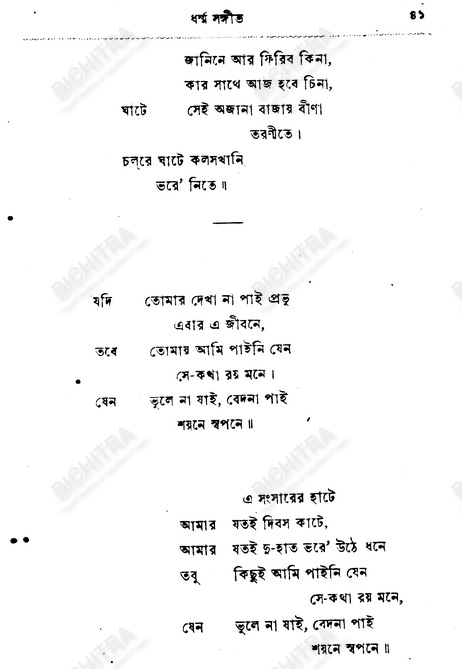 ধর্ম্ম সঙ্গীত ৪১
জানিনে আর ফিরিব কিনা,
কার সাথে আজ হবে চিনা,
ঘাটে সেই অজানা বাজায় বীণা
তরণীতে।
চল্‌রে ঘাটে কলসখানি
ভরে' নিতে॥
যদি তোমার দেখা না পাই প্রভু
এবার এ জীবনে,
তবে তোমায় আমি পাইনি যেন
সে-কথা রয় মনে।
যেন ভুলে না যাই, বেদনা পাই
শয়নে স্বপনে॥
এ সংসারের হাটে
আমার যতই দিবস কাটে,
আমার যতই দু-হাত ভরে' উঠে ধনে
তবু কিছুই আমি পাইনি যেন
সে-কথা রয় মনে,
যেন ভুলে না যাই, বেদনা পাই
শয়নে স্বপনে॥
BICHITRA
BICHITRA
BICHITRA
BICHITRA
BICHITRA
BICHITRA
BICHITRA
BICHITRA
BICHITRA